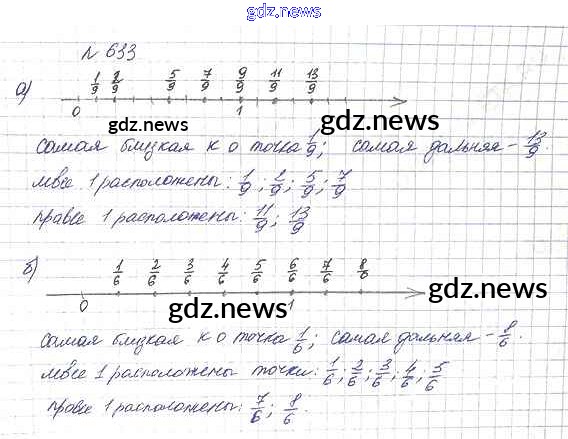 gdz.news
№ 633
а) 1/9 2/9 5/9 7/9 9/9 11/9 13/9
0 1
gdz.news gdz.news
самая близкая к 0 точка 1/9; самая дальняя - 13/9.
левее 1 расположены: 1/9; 2/9; 5/9; 7/9
правее 1 расположены: 11/9; 13/9
б) 1/6 2/6 3/6 4/6 5/6 6/6 7/6 8/6
0 1
gdz.news gdz.news
самая близкая к 0 точка 1/6; самая дальняя - 8/6.
левее 1 расположены точки: 1/6; 2/6; 3/6; 4/6; 5/6
правее 1 расположены: 7/6; 8/6.
gdz.news